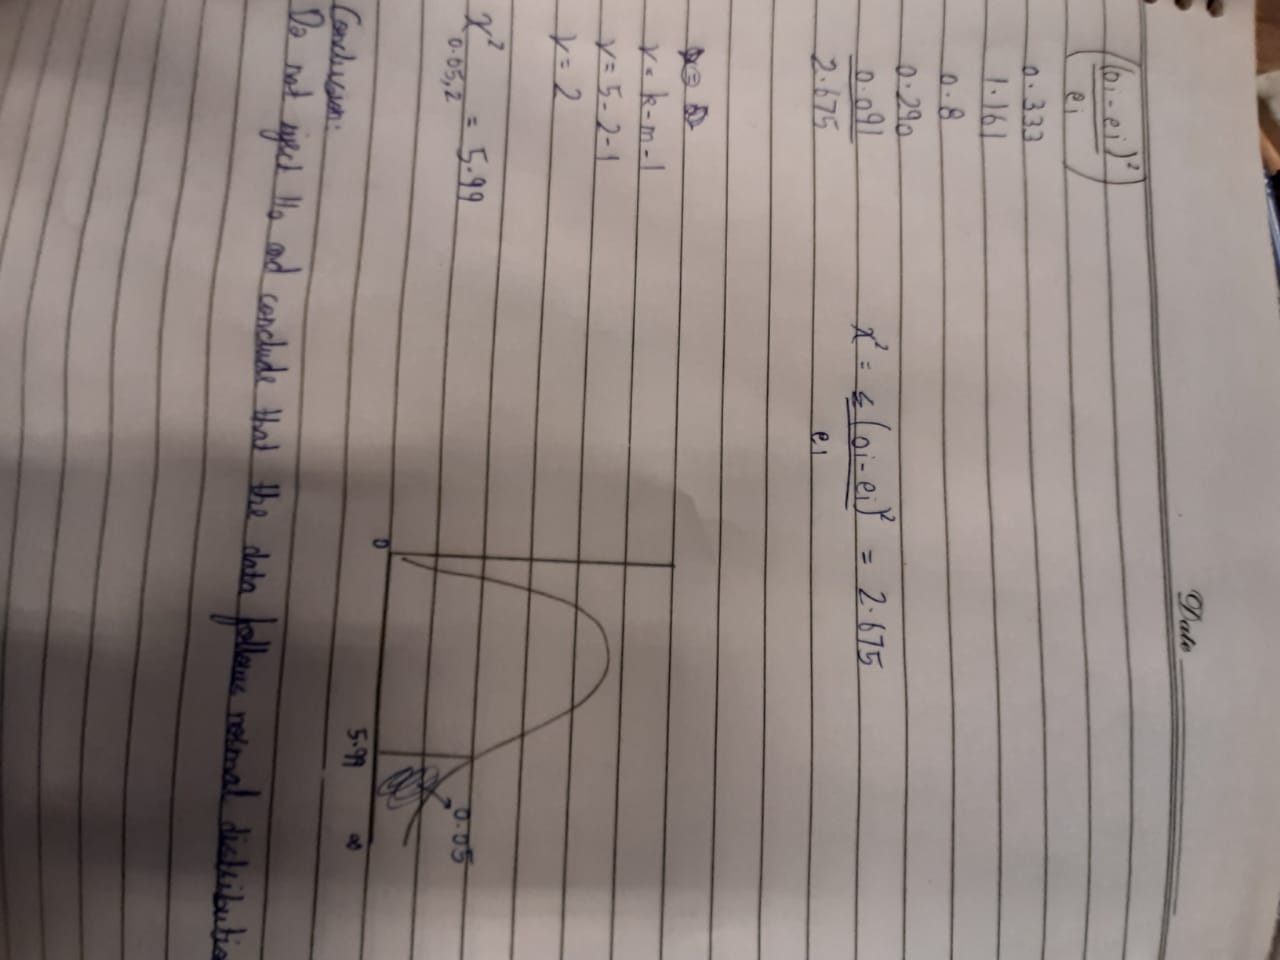 Date
((oi - ei)²
ei)
0.333
1.161
0.8
0.290
0.091
2.675
χ² = Σ (oi - ei)² = 2.675
ei
γ = k-m-1
γ = 5-2-1
γ = 2
χ²0.05,2 = 5.99
0.05
0
5.99
∞
Conclusion:
Do not reject H₀ and conclude that the data follows normal distributio